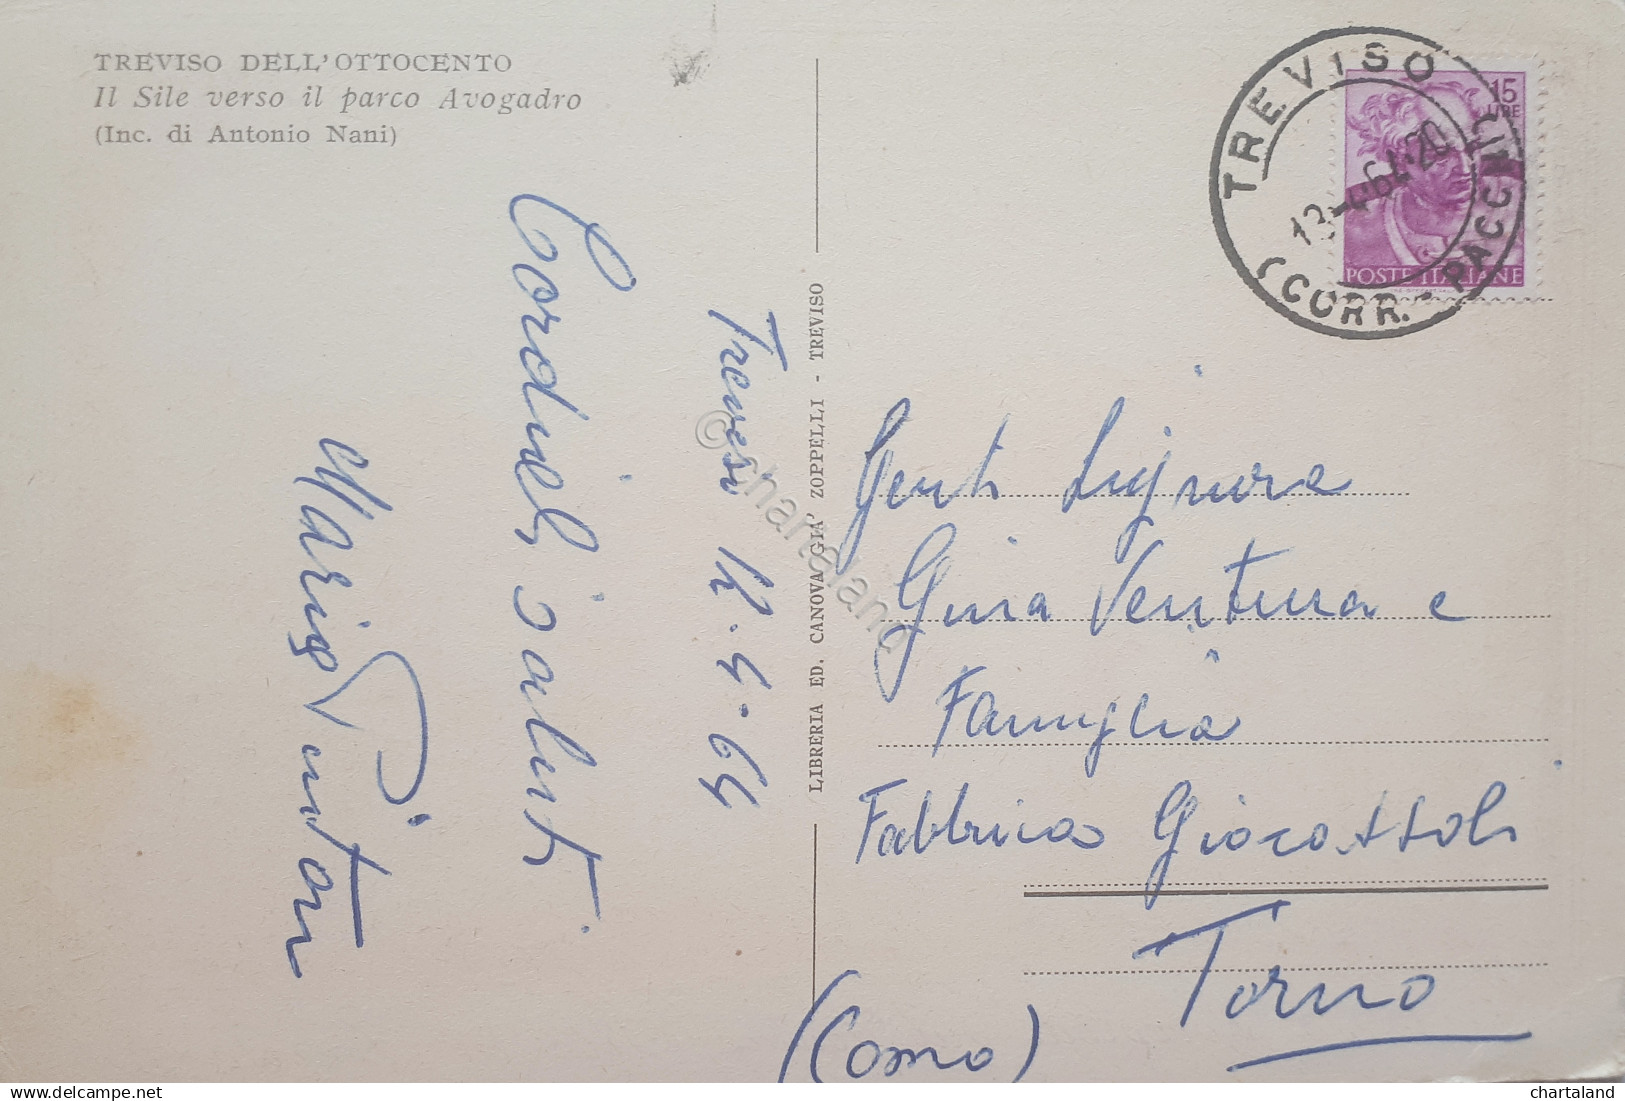 TREVISO DELL'OTTOCENTO
Il Sile verso il parco Avogadro
(Inc. di Antonio Nani)
TREVISO
(CORR. - PACCHI)
15
LIRE
POSTE ITALIANE
Treviso 12.4.64
Cordiali saluti
LIBRERIA ED. CANOVA GIA' ZOPPELLI - TREVISO
Gent. Signora
Ventura e
Famiglia
Fabbrica
Torno
(Como)
© chartaland
delcampe.net
chartaland